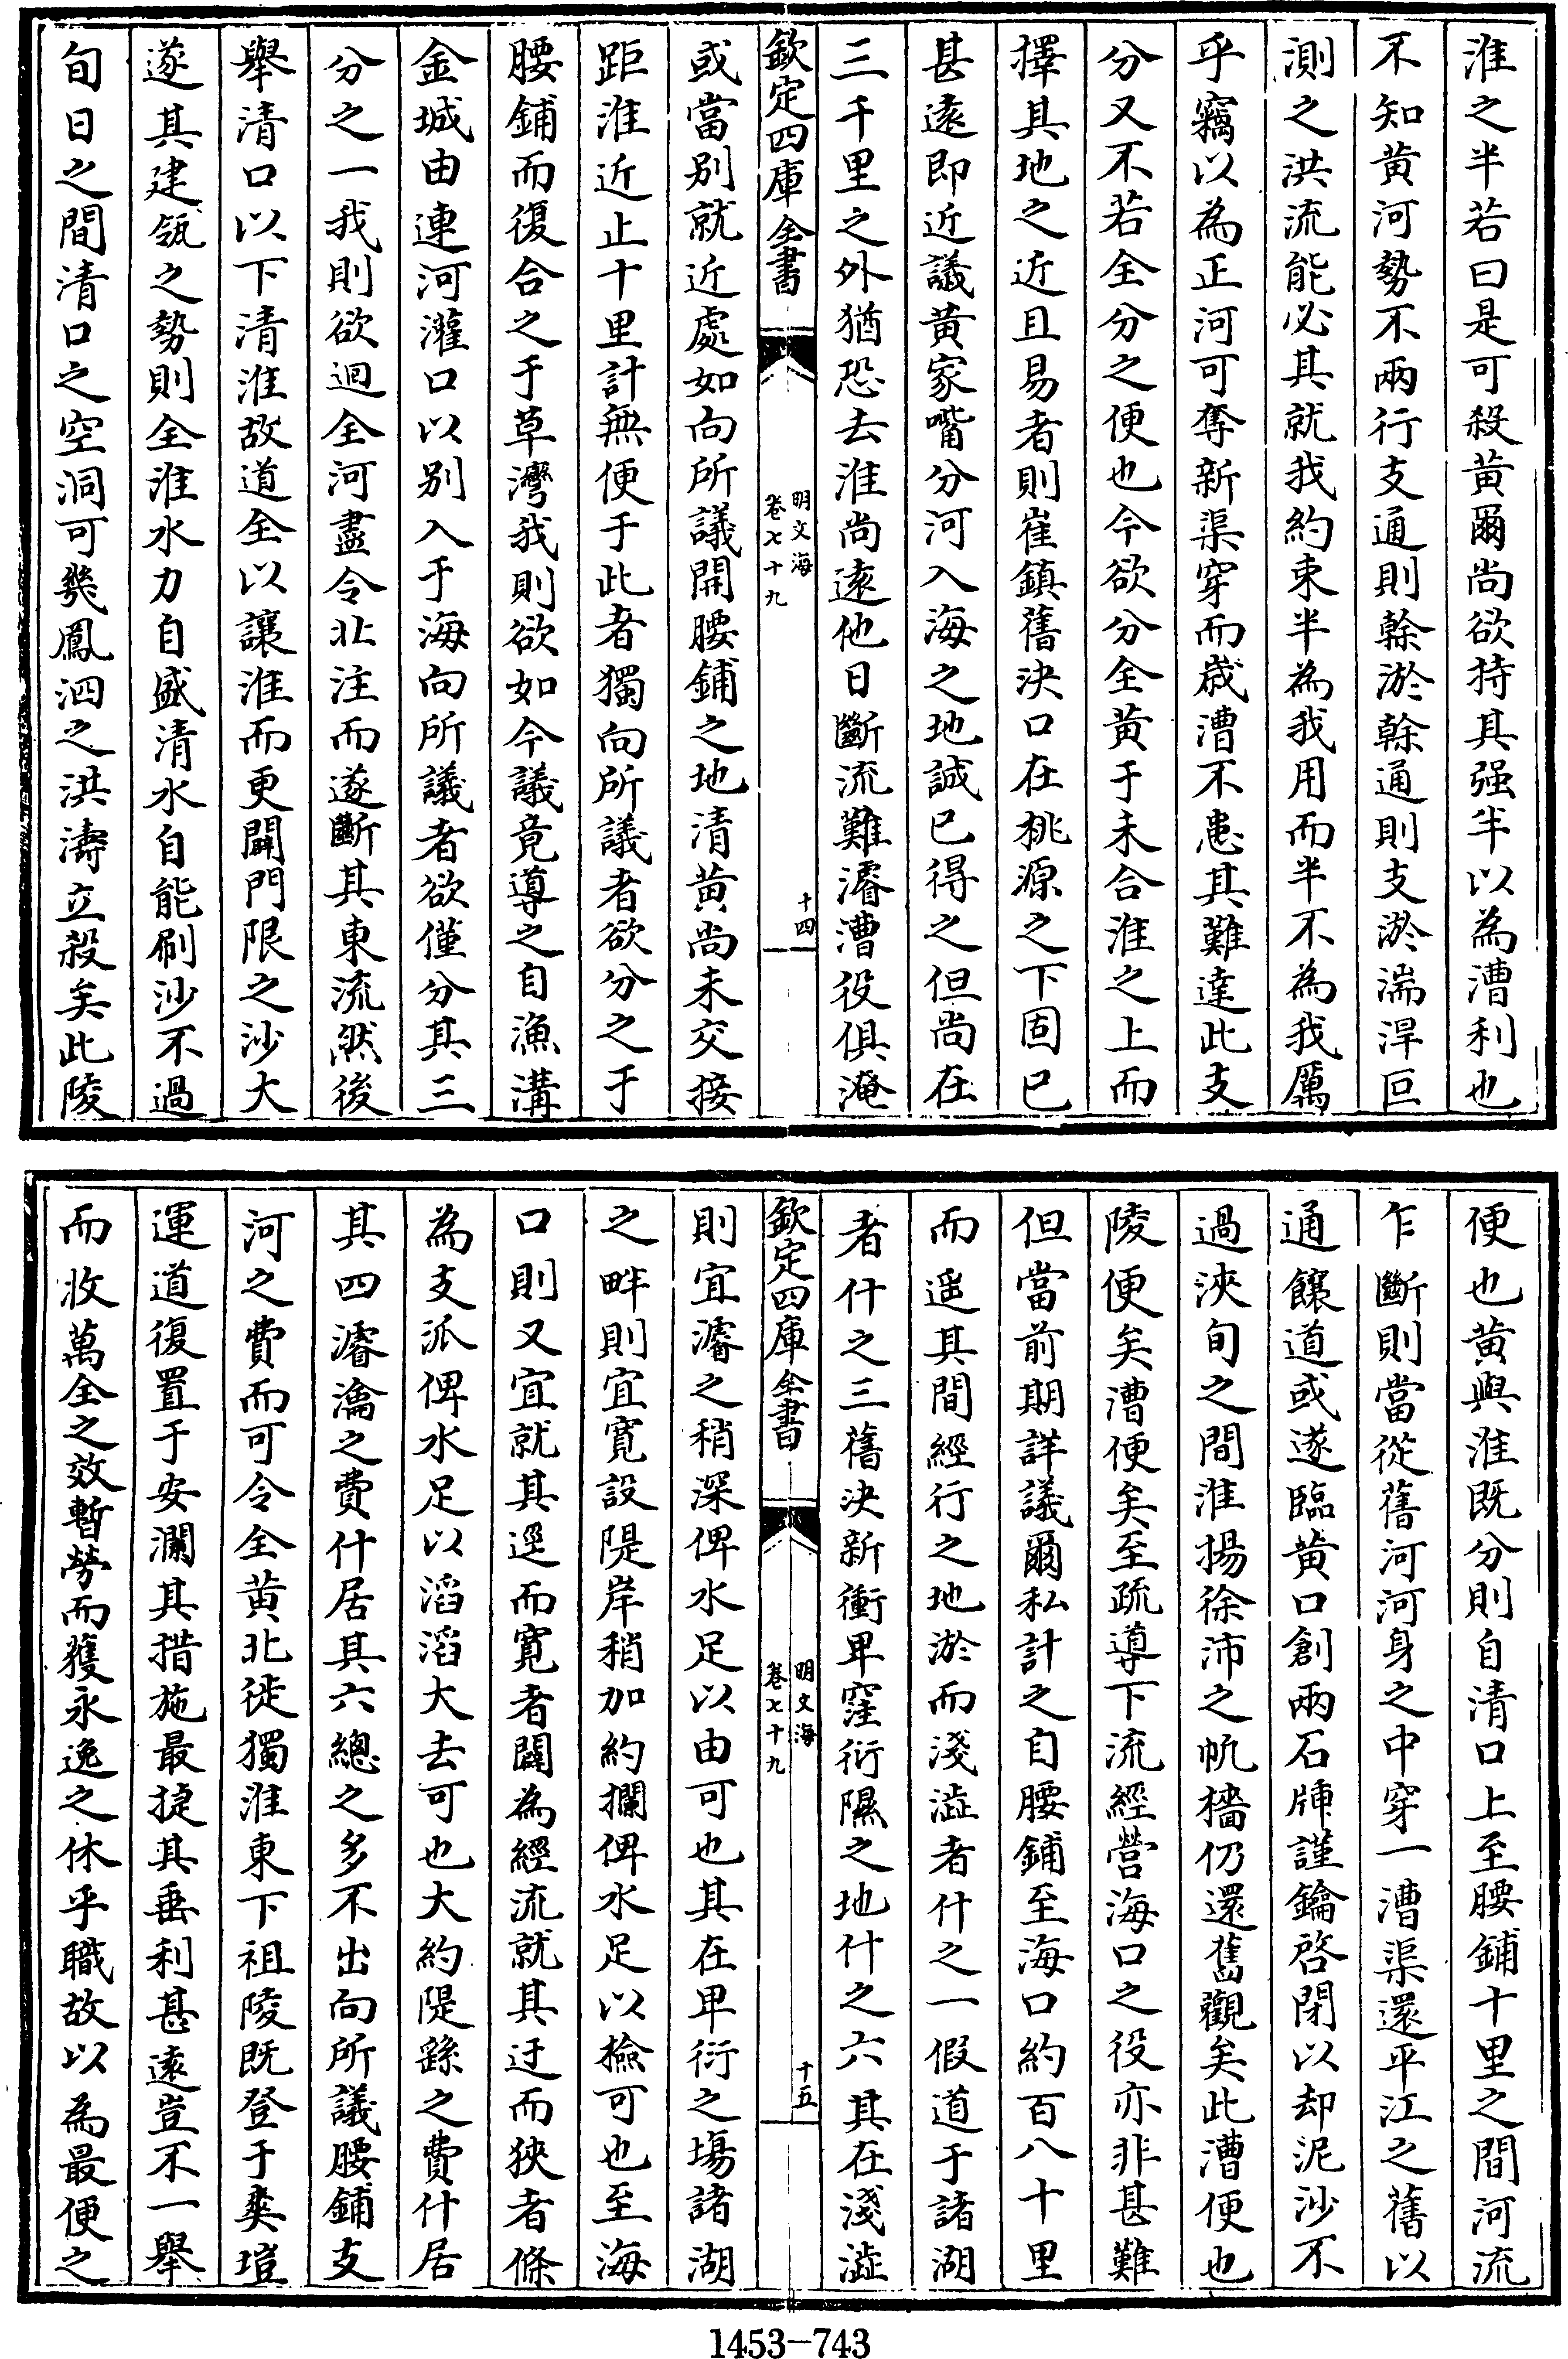 淮之半若曰是可殺黃爾尚欲持其强半以為漕利也
不知黃河勢不兩行支通則榦淤榦通則支淤湍渾叵
測之洪流能必其就我約束半為我用而半不為我厲
乎竊以為正河可奪新渠穿而歳漕不患其難達此支
分又不若全分之便也今欲分全黃于未合淮之上而
擇其地之近且易者則崔鎮舊決口在桃源之下固已
甚遠即近議黃家嘴分河入海之地誠已得之但尚在
三千里之外猶恐去淮尚遠他日斷流難濬漕役俱淹
欽定四庫全書
明文海
卷七十九
十四
或當别就近處如向所議開腰鋪之地清黃尚未交接
距淮近止十里計無便于此者獨向所議者欲分之于
腰鋪而復合之于草灣我則欲如今議竟導之自漁溝
金城由連河灌口以别入于海向所議者欲僅分其三
分之一我則欲迴全河盡令北注而遂斷其東流然後
舉清口以下清淮故道全以讓淮而更闢門限之沙大
遂其建瓴之勢則全淮水力自盛清水自能刷沙不過
旬日之間清口之空洞可幾鳳泗之洪濤立殺矣此陵
便也黃與淮既分則自清口上至腰鋪十里之間河流
乍斷則當從舊河河身之中穿一漕渠還平江之舊以
通饟道或遂臨黃口創兩石牐謹鑰啓閉以却泥沙不
過浹旬之間淮揚徐沛之帆檣仍還舊觀矣此漕便也
陵便矣漕便矣至疏導下流經營海口之役亦非甚難
但當前期詳議爾私計之自腰鋪至海口約百八十里
而遥其間經行之地淤而淺澁者什之一假道于諸湖
者什之三舊決新衝卑窪衍隰之地什之六其在淺澁
欽定四庫全書
明文海
卷七十九
十五
則宜濬之稍深俾水足以由可也其在卑衍之塲諸湖
之畔則宜寛設隄岸稍加約攔俾水足以檢可也至海
口則又宜就其逕而寛者闢為經流就其迂而狹者條
為支派俾水足以滔滔大去可也大約隄繇之費什居
其四濬瀹之費什居其六總之多不出向所議腰鋪支
河之費而可令全黃北徙獨淮東下祖陵既登于奠塏
運道復置于安瀾其措施最捷其垂利甚遠豈不一舉
而收萬全之效暫勞而獲永逸之休乎職故以為最便之
1453-743